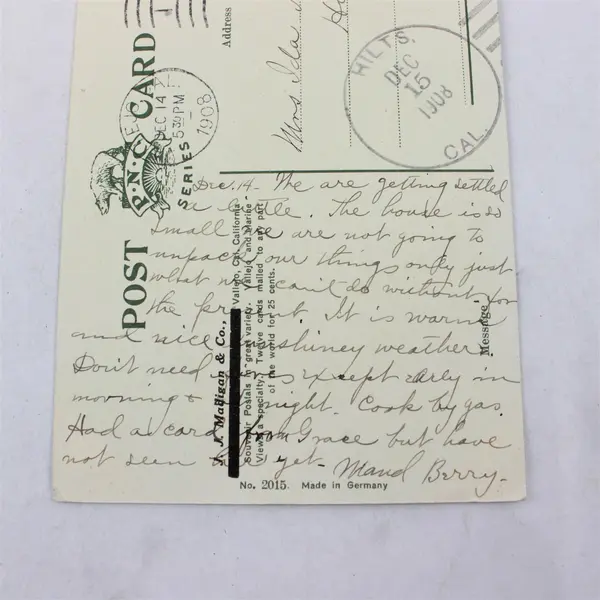 POST CARD
P.N.C.
SERIES
VALLEJO
DEC 14
5 30 PM
1908
Address
Mrs Ida
HILTS.
DEC
15
1908
CAL.
Dec. 14 - We are getting settled
a little. The house is so
small we are not going to
unpack our things only just
what we can't do without for
the present. It is warm
and nice sunshiney weather.
Don't need fires except early in
morning & night. Cook by gas.
Had a card from Grace but have
not seen her yet - Maud Berry -
Message
J. J. Madigan & Co., Vallejo, Cal. California
Souvenir Postals in great variety. Vallejo and Marine
Views a specialty. Twelve cards mailed to any part
of the world for 25 cents.
No. 2015. Made in Germany